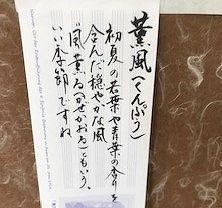 薫風(くんぷう)
初夏の若葉や青葉の香りを
含んだ穏やかな風
"風薫る(かぜかおる)ともいう。
いい季節ですね